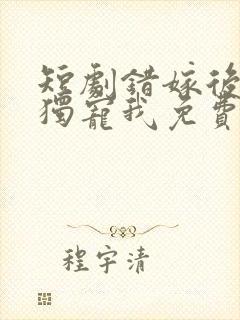 短劇錯嫁後
獨寵我免費
程宇清